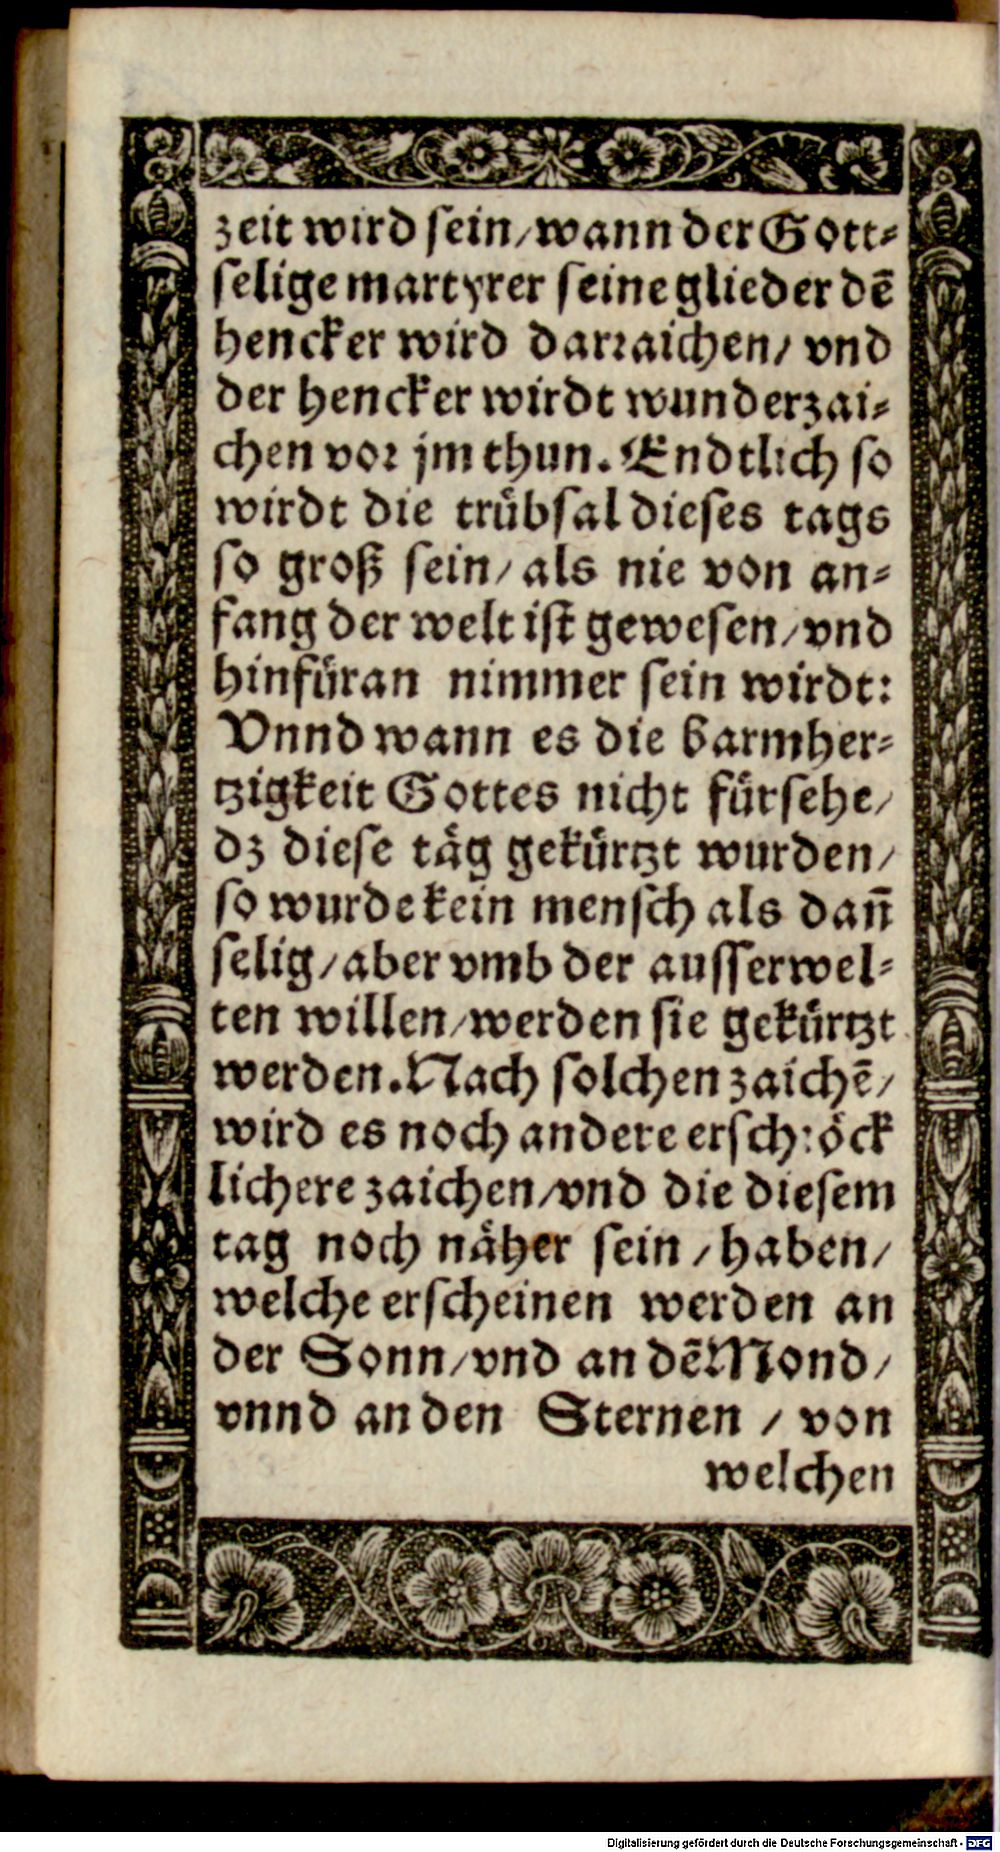 zeit wird sein/wann der Gott⸗
selige martyrer seine glieder dē
hencker wird darraichen/ vnd
der hencker wirdt wunderzai⸗
chen vor jm thun. Endtlich so
wirdt die trübsal dieses tags
so groß sein/ als nie von an⸗
fang der welt ist gewesen/vnd
hinfüran nimmer sein wirdt:
Vnnd wann es die barmher⸗
tzigkeit Gottes nicht fürsehe/
dz diese täg gekürtzt wurden/
so wurde kein mensch als dañ
selig/aber vmb der ausserwel⸗
ten willen/werden sie gekürtzt
werden. Nach solchen zaichē/
wird es noch andere erschröck
lichere zaichen/vnd die diesem
tag noch näher sein/haben/
welche erscheinen werden an
der Sonn/vnd an dē Mond/
vnnd an den Sternen / von
welchen
Digitalisierung gefördert durch die Deutsche Forschungsgemeinschaft - DFG